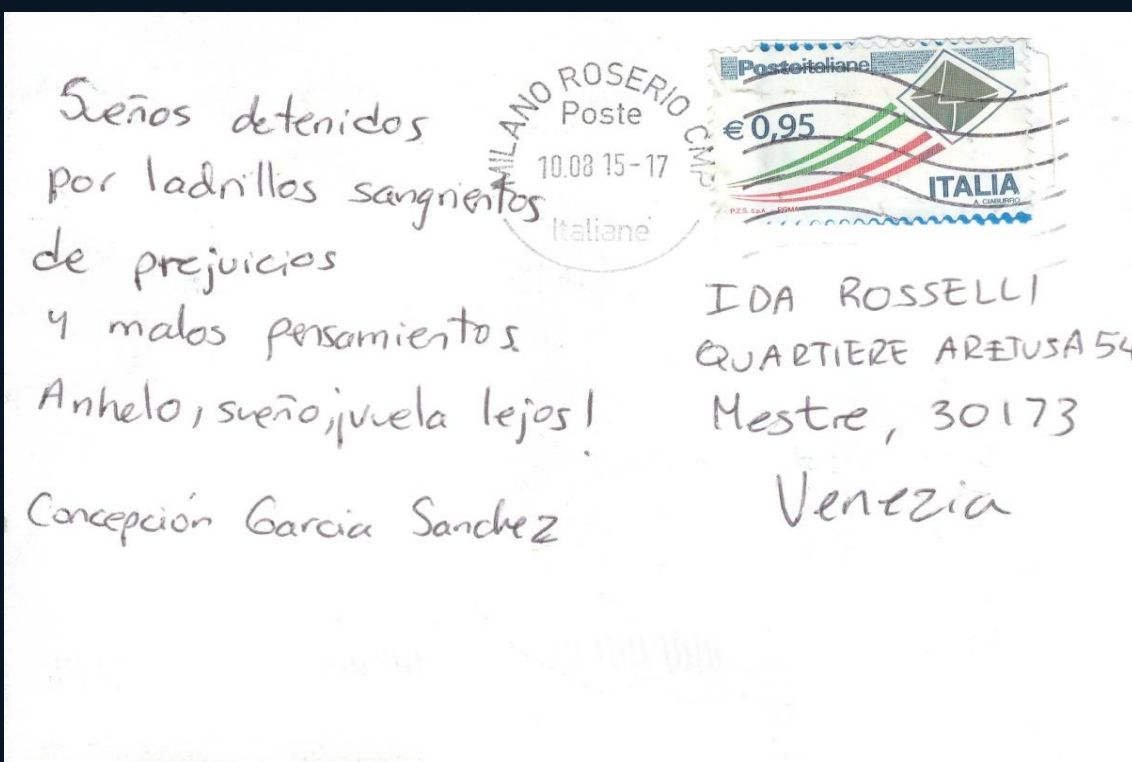 Sueños detenidos
por ladrillos sangrientos
de prejuicios
y malos pensamientos.
Anhelo, sueño, ¡vuela lejos!
Concepción Garcia Sanchez
MILANO ROSERIO CMP
Poste
10.08 15-17
Italiane
Posteitaliane
€ 0,95
ITALIA
A. CIABURRO
P.Z.S. S.p.A. - ROMA
IDA ROSSELLI
QUARTIERE ARETUSA 54
Mestre, 30173
Venezia